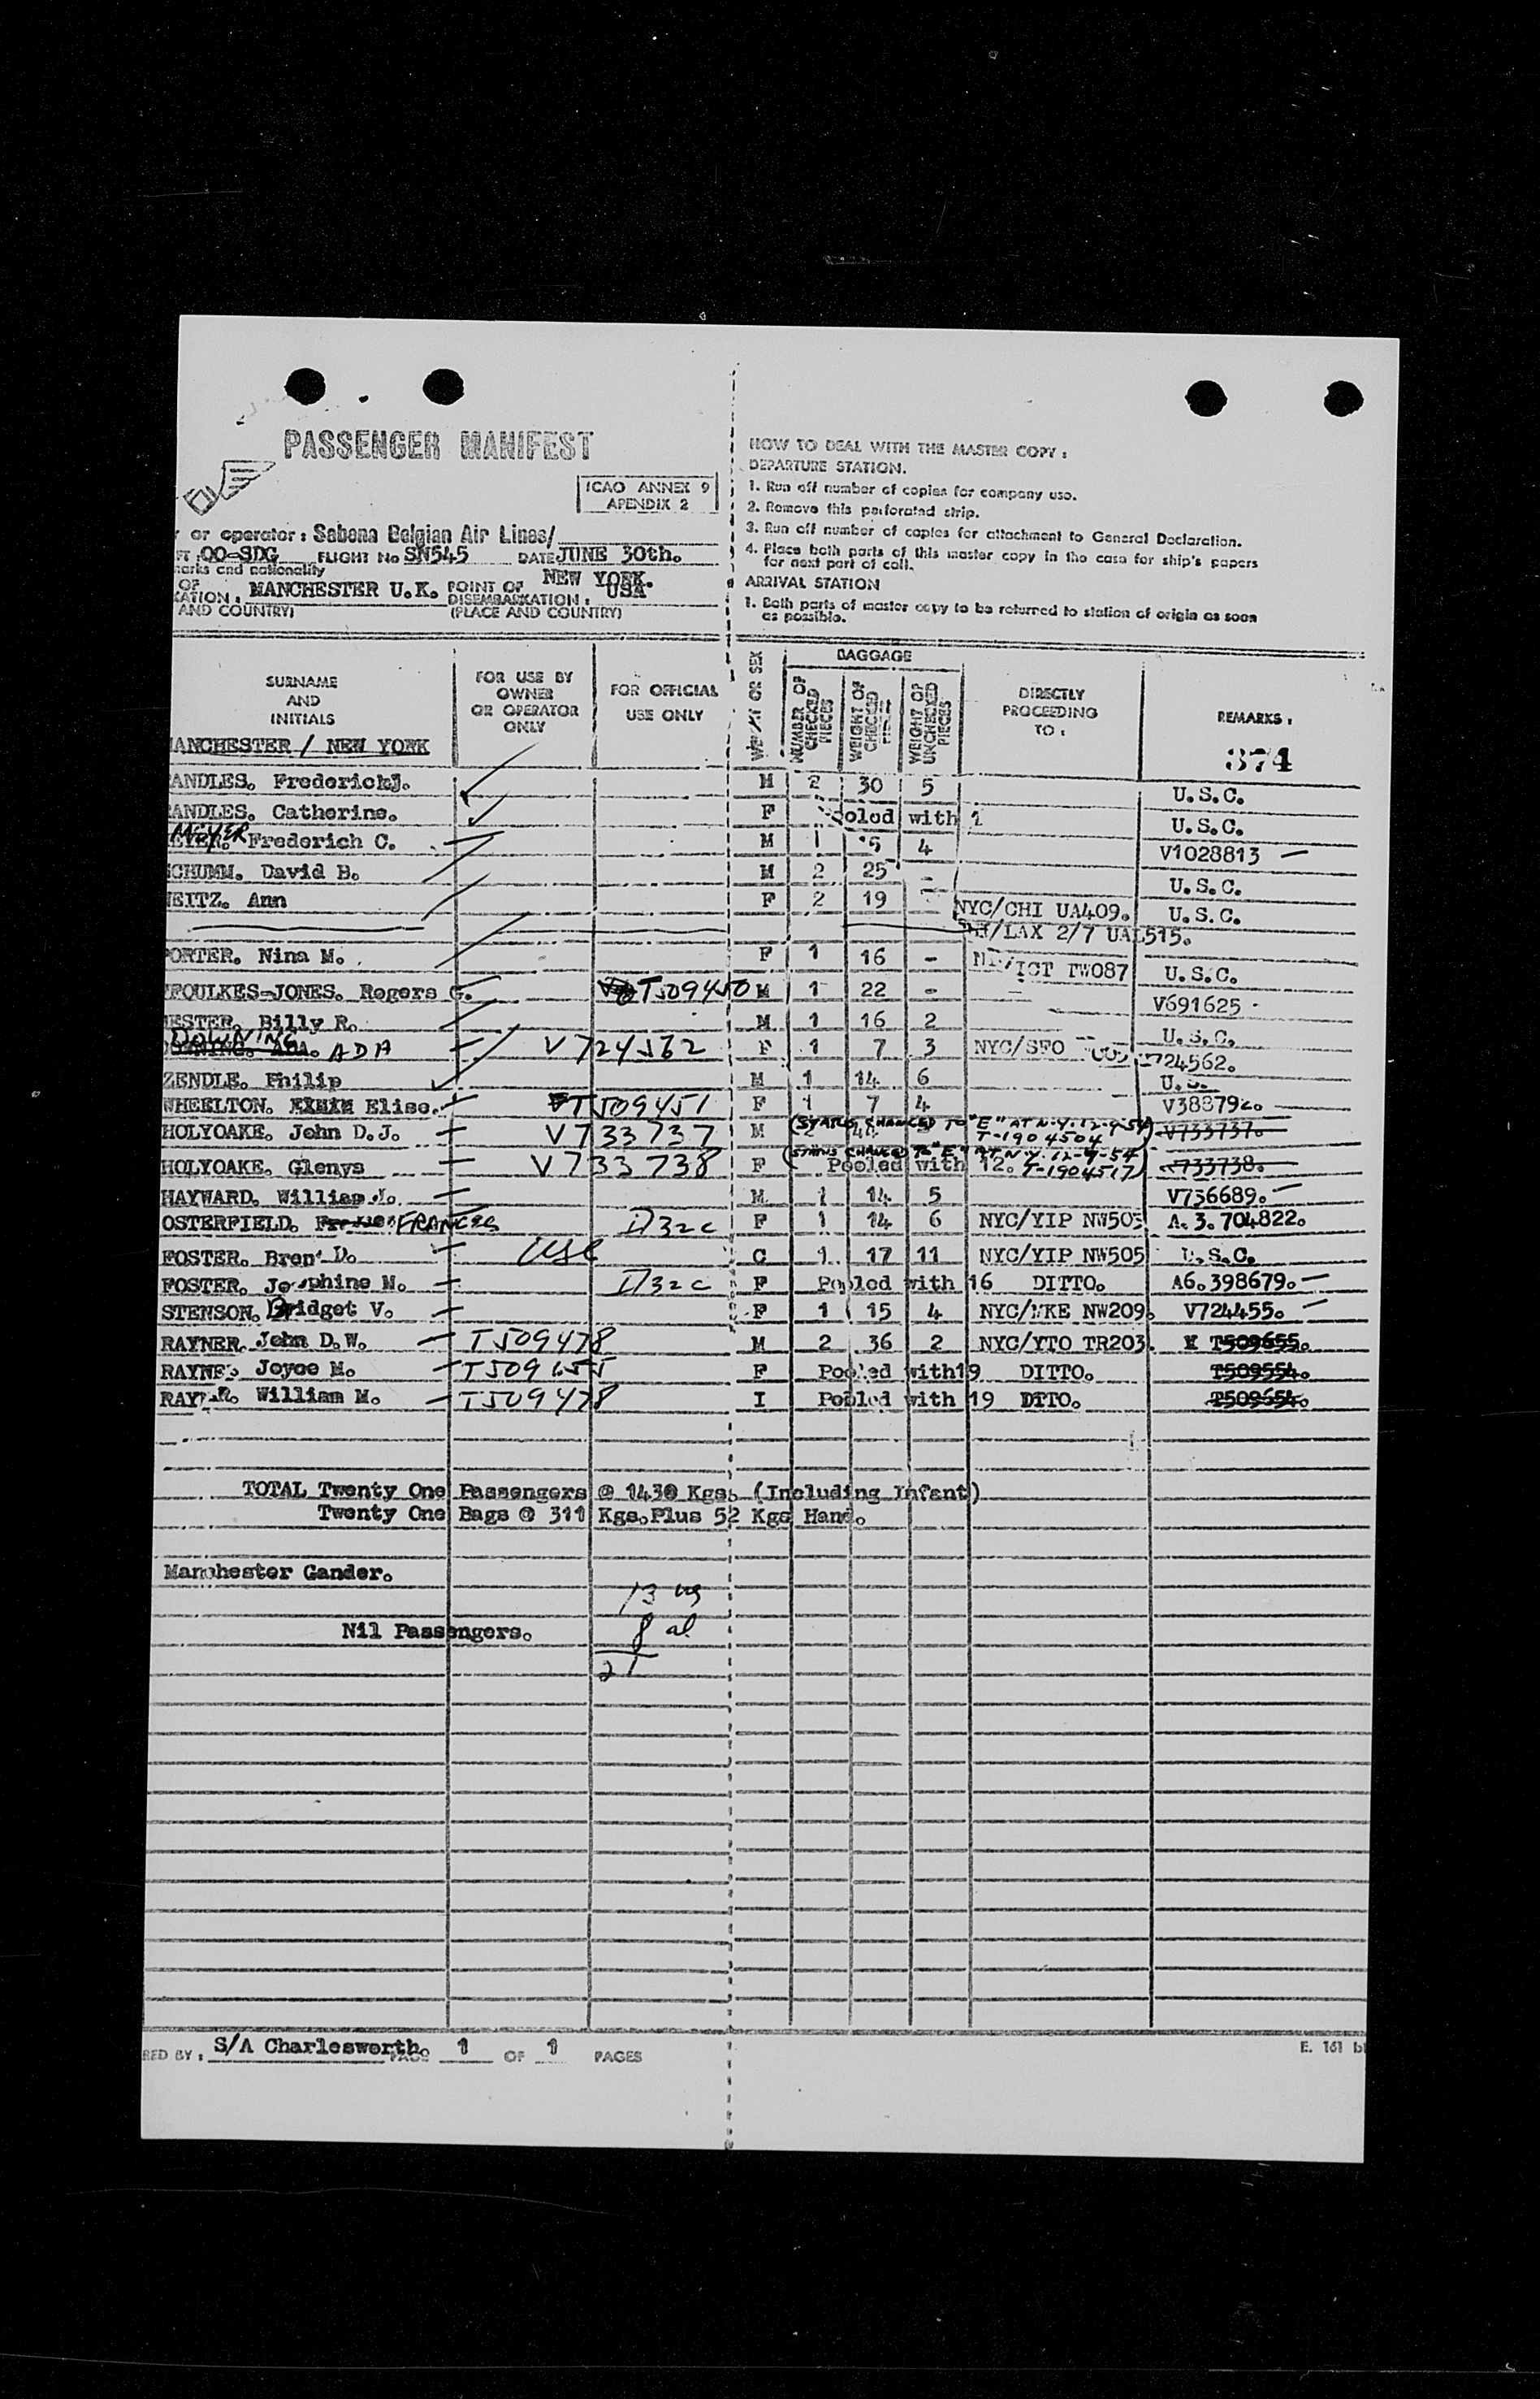 PASSENGER MANIFEST
ICAO ANNEX 9
APENDIX 2
or operator: Sabena Belgian Air Lines/
OO-SDG FLIGHT No SN545 DATE JUNE 30th.
marks and nationality
OF MANCHESTER U.K. POINT OF NEW YORK.
DISEMBARKATION: USA
AND COUNTRY) (PLACE AND COUNTRY)
HOW TO DEAL WITH THE MASTER COPY:
DEPARTURE STATION.
1. Run off number of copies for company use.
2. Remove this perforated strip.
3. Run off number of copies for attachment to General Declaration.
4. Place both parts of this master copy in the case for ship's papers
for next part of call.
ARRIVAL STATION
1. Both parts of master copy to be returned to station of origin as soon
as possible.
SURNAME
AND
INITIALS
FOR USE BY
OWNER
OR OPERATOR
ONLY
FOR OFFICIAL
USE ONLY
OR SEX
BAGGAGE
NUMBER OF CHECKED PIECES
WEIGHT OF CHECKED
WEIGHT OF UNCHECKED PIECES
DIRECTLY
PROCEEDING
TO:
REMARKS:
374
ANCHESTER / NEW YORK
ANDLES. Frederick J. M 2 30 5 U.S.C.
ANDLES. Catherine. F ooled with 1 U.S.C.
MEYER Frederich C. M 1 15 4 V1028813
CHUMM. David B. M 2 25 - U.S.C.
EITZ. Ann F 2 19 - NYC/CHI UA409. U.S.C.
/LAX 2/7 UAL515.
ORTER. Nina M. F 1 16 - /ICT TW087 U.S.C.
FOULKES-JONES. Rogers G. T509450 M 1 22 - V691625
ESTER. Billy R. M 1 16 2 U.S.C.
DOWNING ADA V724562 F 1 7 3 NYC/SFO 724562.
ZENDLE. Philip M 1 14 6 U.S.
WHEELTON. Elise. T509451 F 1 7 4 V388792.
(STATUS CHANGED TO "E" AT N.Y. 12-9-54)
HOLYOAKE. John D.J. V733737 M T-1904504 V733737.
(STATUS CHANGED TO "E" AT N.Y. 12-9-54
HOLYOAKE. Glenys V733738 F Pooled with 12. T-1904517) V733738.
HAYWARD. William J. M 1 14 5 V736689.
OSTERFIELD. FRANCES I732c F 1 14 6 NYC/YIP NW505 A.3.704822.
FOSTER. Brent D. USC C 1 17 11 NYC/YIP NW505 U.S.C.
FOSTER. Josephine M. I732c F Pooled with 16 DITTO. A6.398679.
STENSON. Bridget V. F 1 15 4 NYC/MKE NW209. V724455.
RAYNER. John D.W. T509478 M 2 36 2 NYC/YTO TR203. T509655.
RAYNE. Joyce M. T509655 F Pooled with19 DITTO. T509554.
RAYNER. William M. T509478 I Pooled with 19 DITTO. T509654.
TOTAL Twenty One Passengers @ 1430 Kgs. (Including Infant)
Twenty One Bags @ 311 Kgs.Plus 52 Kgs Hand.
Manchester Gander.
13 us
Nil Passengers. 8 al
21
RED BY: S/A Charlesworth. PAGE 1 OF 1 PAGES
E. 161 b